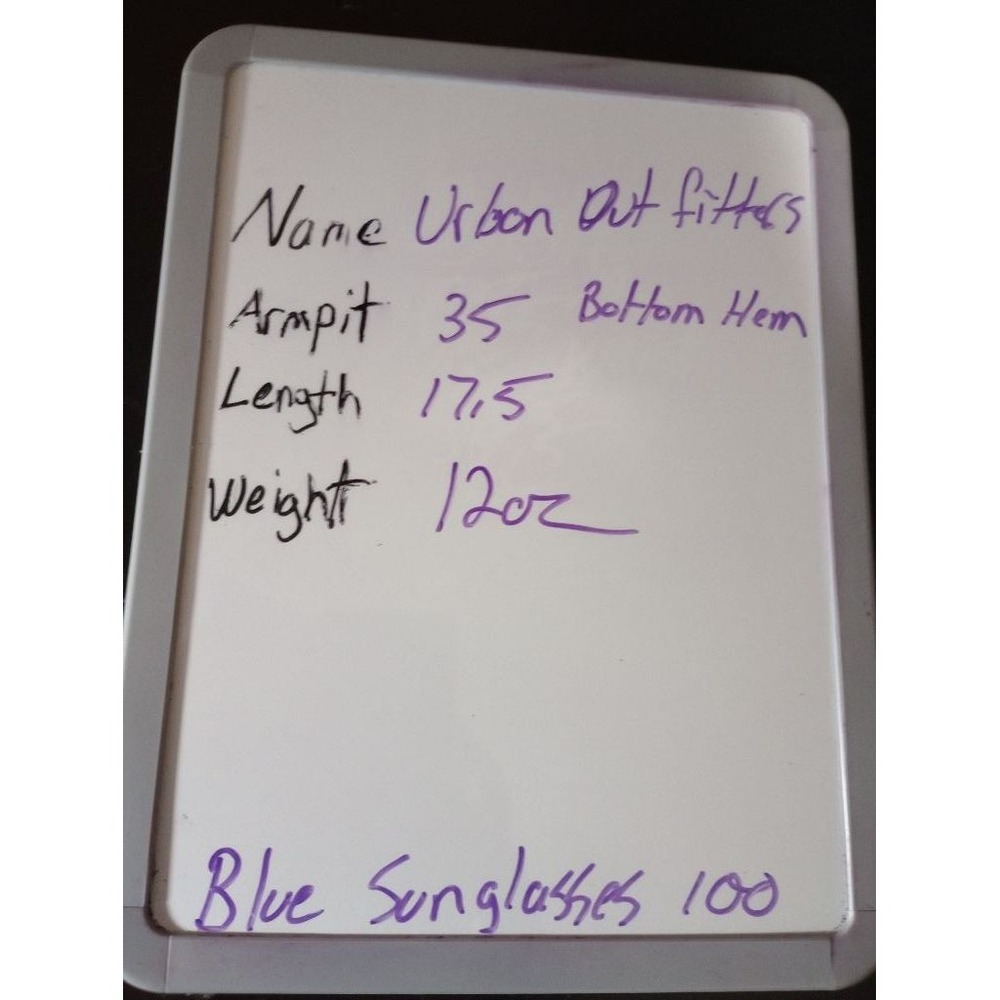 Name Urban Outfitters
Armpit 35 Bottom Hem
Length 17.5
Weight 12oz
Blue Sunglasses 100